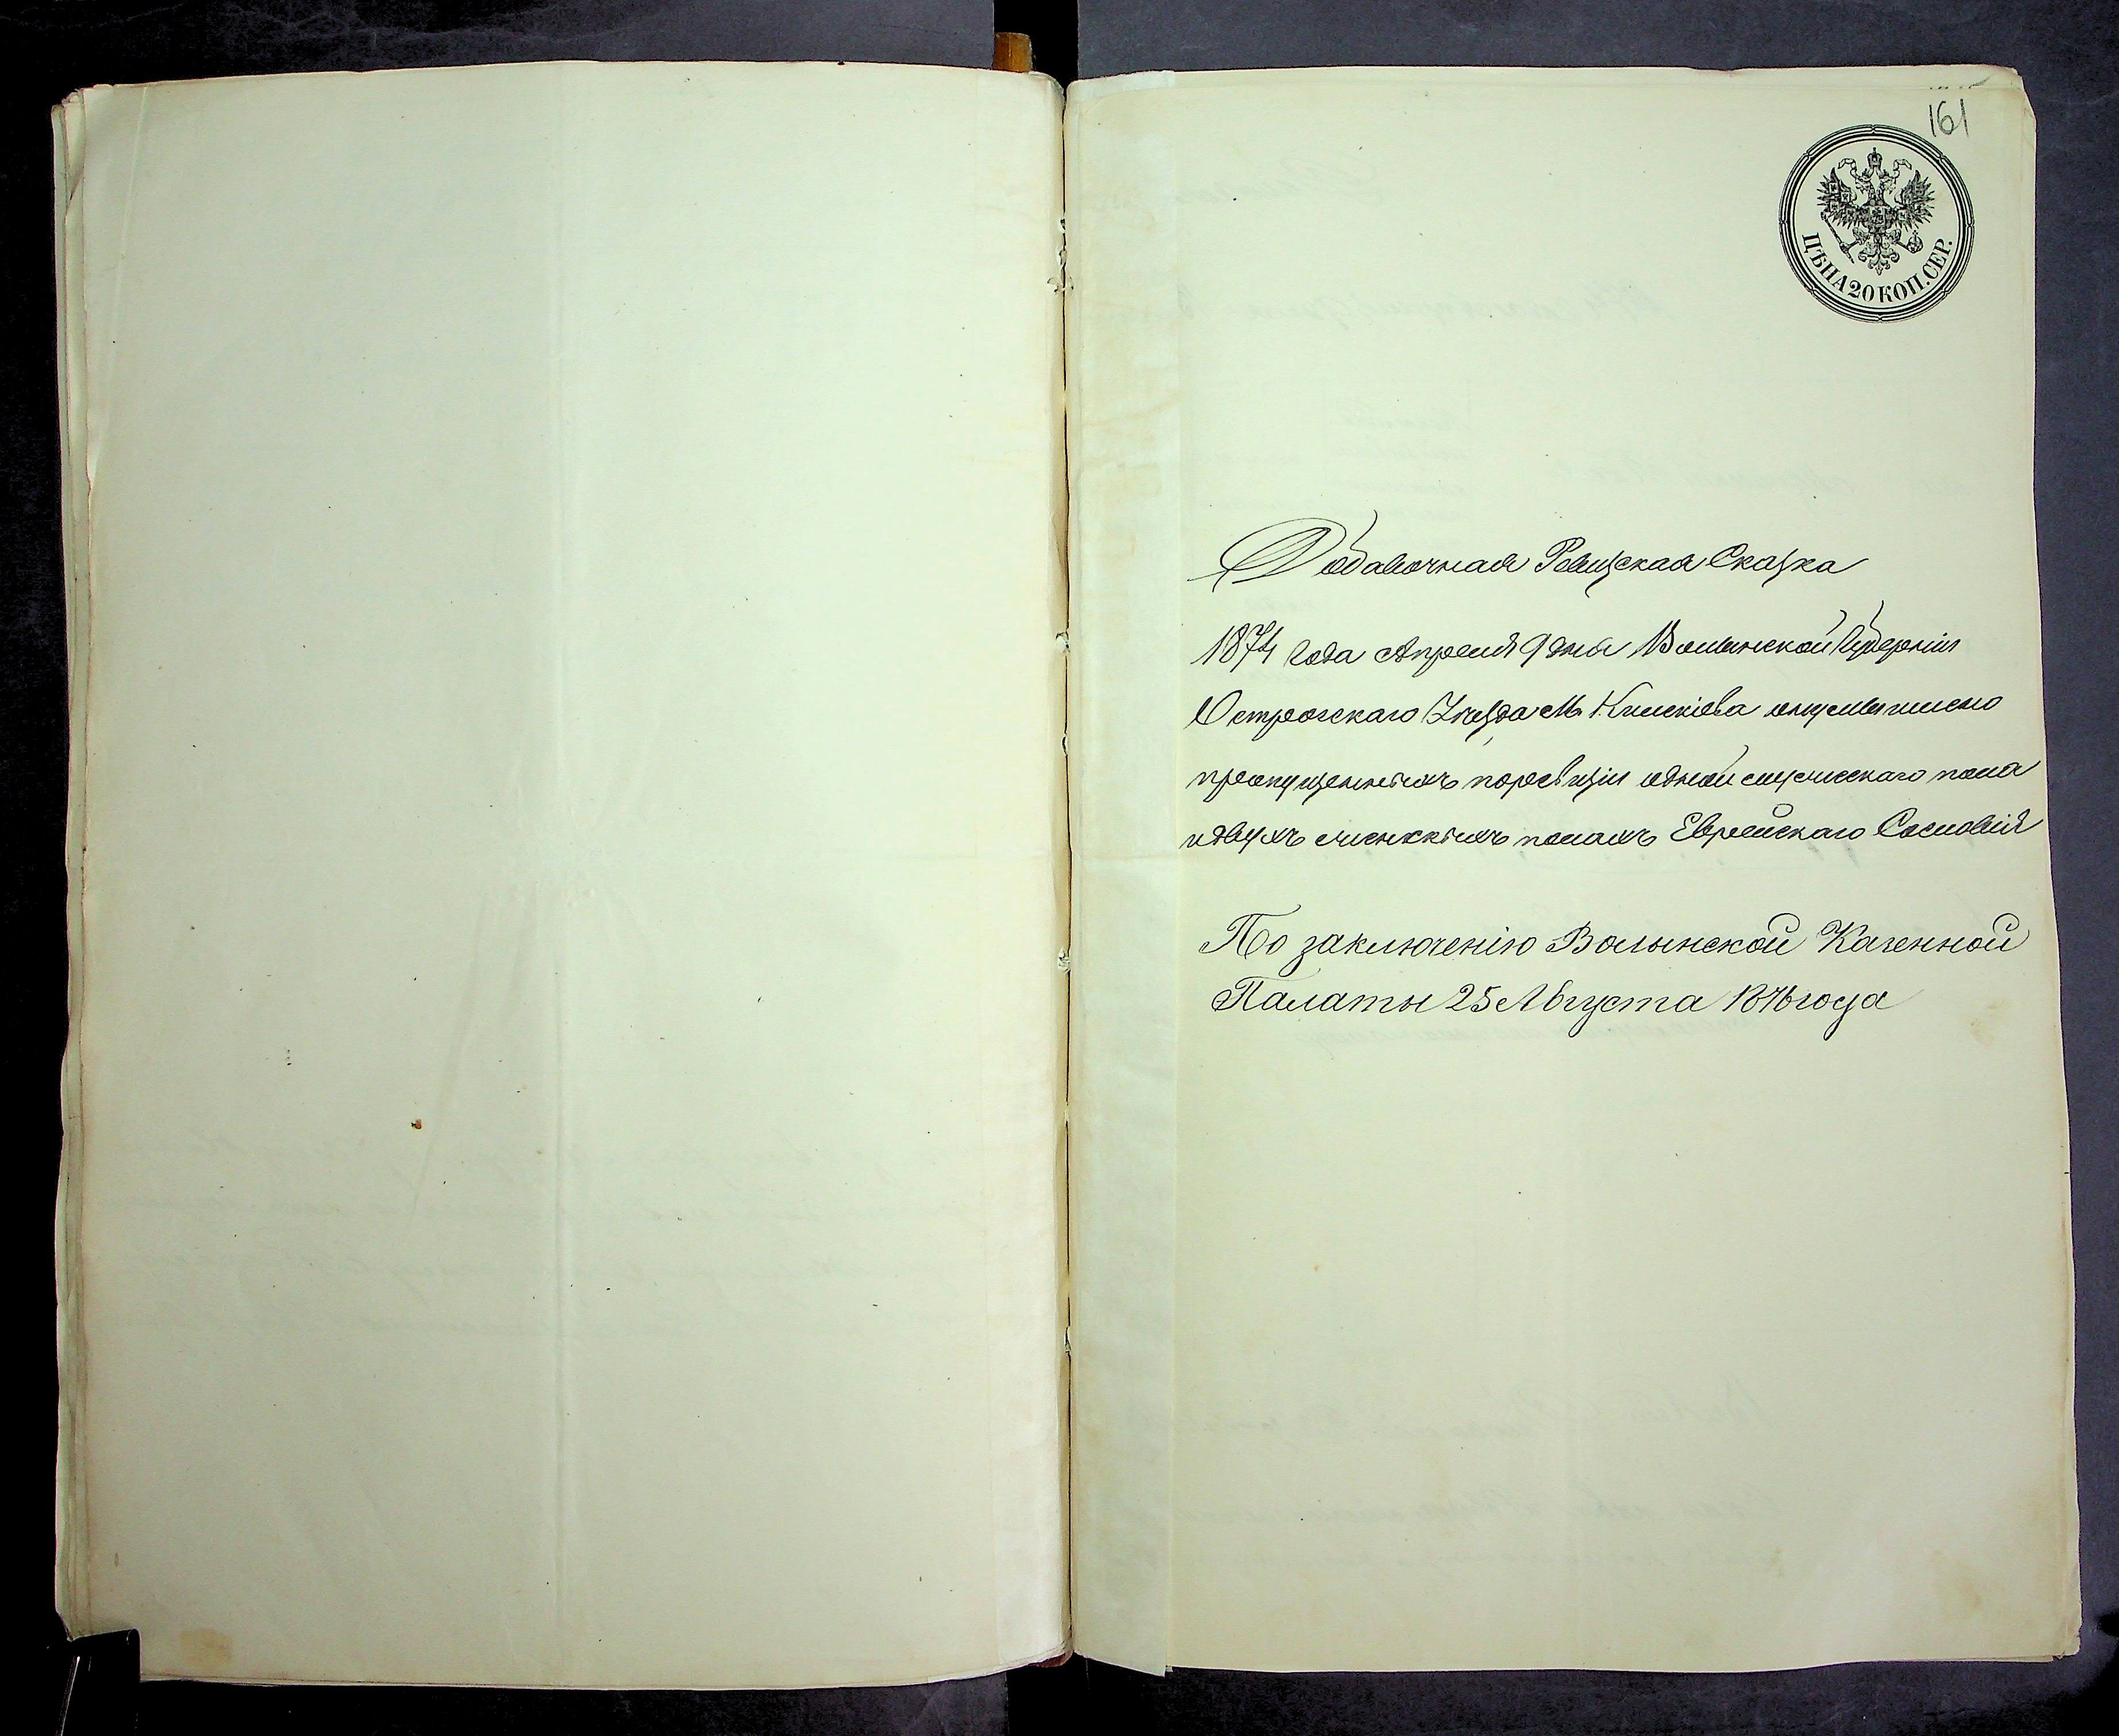 161
ЦѢНА 20 КОП. СЕР.
Добавочная Ревизская Сказка
1874 года Апреля 9 дня Волынской Губерніи
Острогскаго Уезда М.
пропущенныхъ поревизіи одной мужескаго пола
идвухъ женскихъ полахъ Еврейскаго Сословія
По заключенію Волынской Казенной
Палаты 25 Августа 1876 года